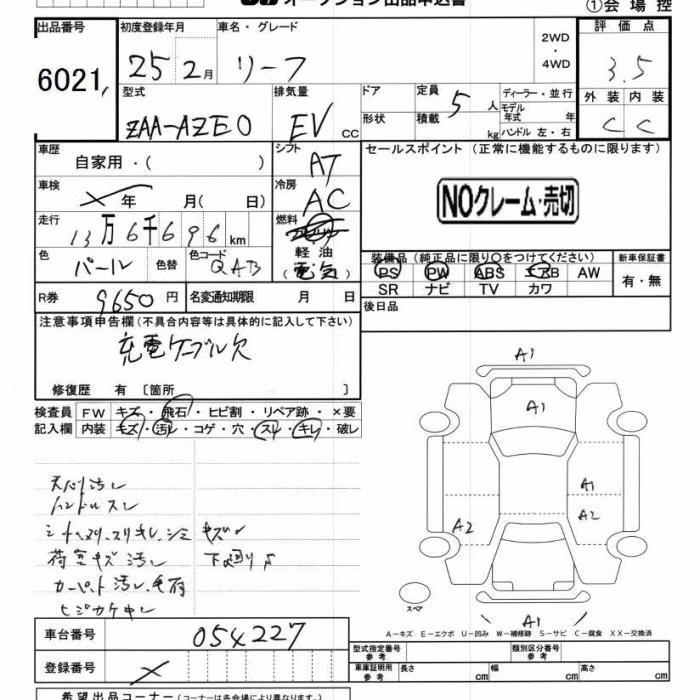 オークション出品申込書
①会場控
出品番号 初度登録年月 車名・グレード 2WD・4WD 評価点
6021 25 2月 リーフ 3.5
型式 排気量 ドア 定員 5 人 ディーラー・並行 外装 内装
ZAA-AZE0 EV cc 形状 積載 kg モデル年式 年 C C
ハンドル 左・右
車歴 シフト セールスポイント (正常に機能するものに限ります)
自家用・( ) AT
車検 冷房 NOクレーム・売切
× 年 月( 日) AC
走行 燃料
13万6千696km 軽油
色 色替 色コード (電気) 装備品(純正品に限り○をつけてください) 新車保証書
パール QAB PS PW ABS エアB AW 有・無
SR ナビ TV カワ
R券 9650円 名変通知期限 月 日 後日品
注意事項申告欄(不具合内容等は具体的に記入して下さい)
充電ケーブル欠
修復歴 有 〔箇所 〕
検査員 FW キズ・飛石・ヒビ割・リペア跡・×要
記入欄 内装 キズ・汚レ・コゲ・穴・スレ・キレ・破レ
天内汚レ
ハンドルスレ
シートヘタリ、スリキレ、シミ キズ
荷室キズ 汚レ 下廻りサ
カーペット汚レ、毛有
ヒジカケキレ
A1
A1
A1
A2
A2
A1
スペア
A-キズ E-エクボ U-凹み W-補修跡 S-サビ C-腐食 XX-交換済
車台番号 054227 型式指定番号 参考 類別区分番号 参考
登録番号 × 車庫証明用 参考 長さ cm 幅 cm 高さ cm
希望出品コーナー(コーナーは各会場により異なります。)